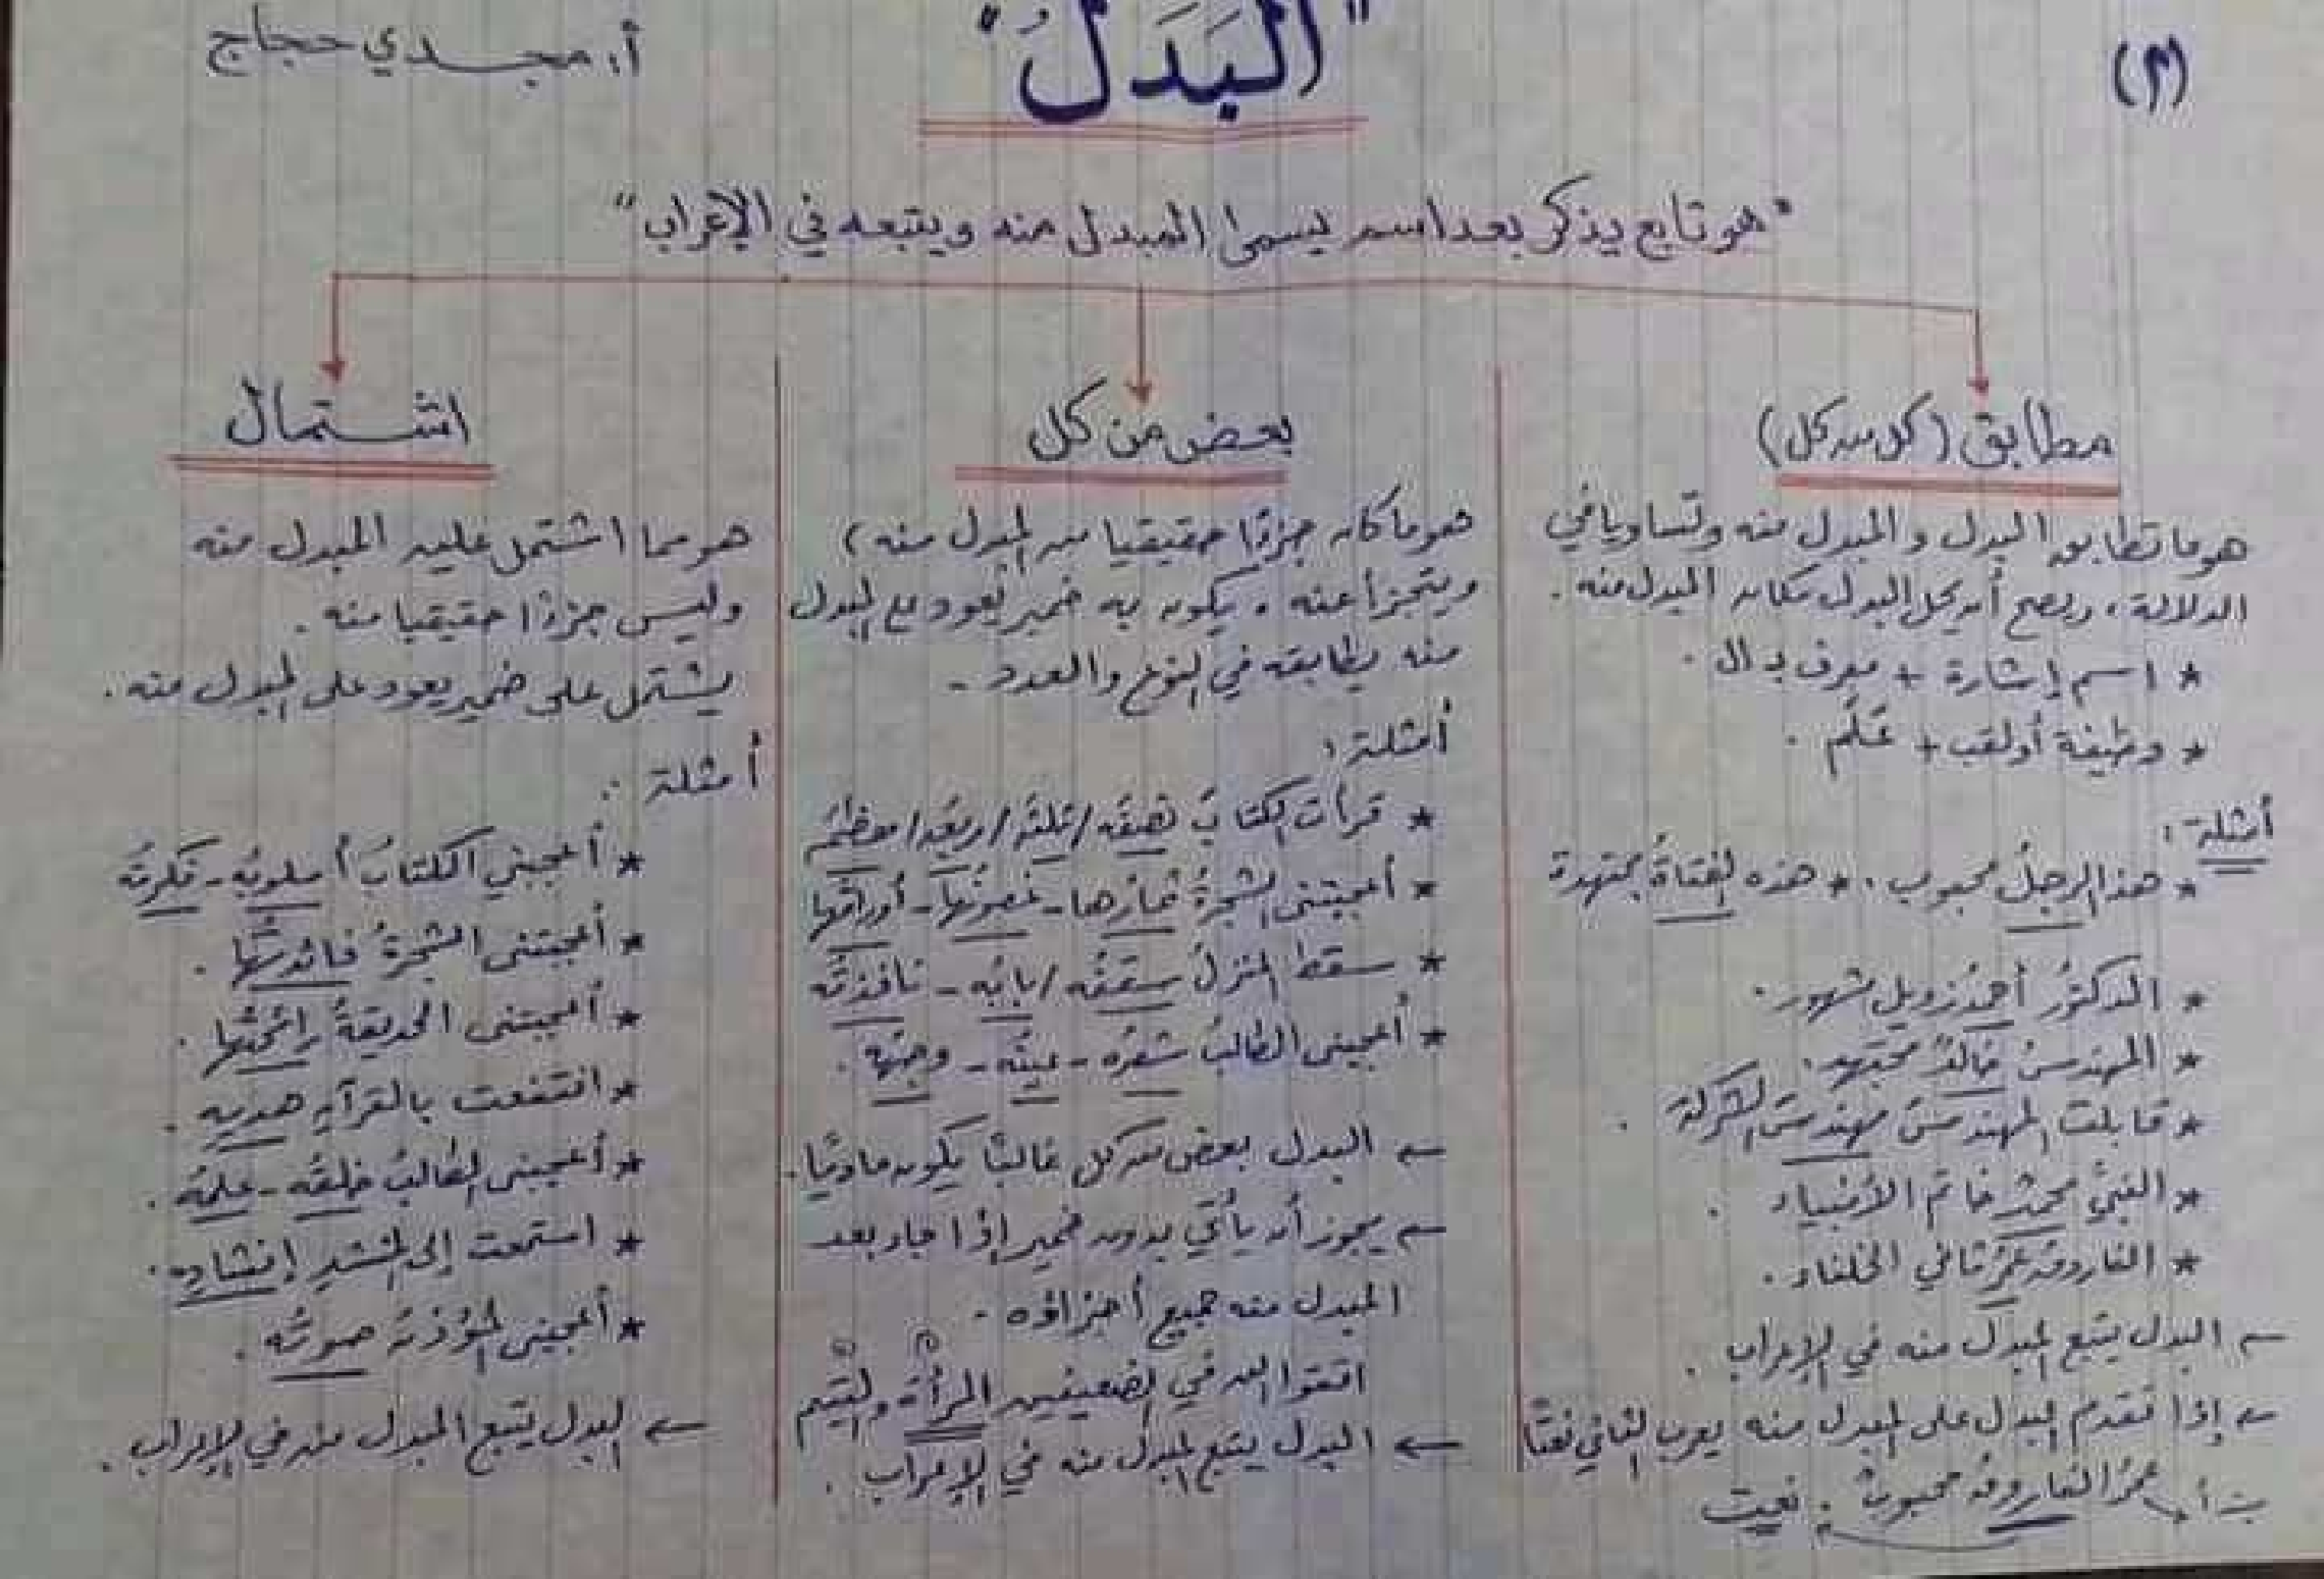 (٣)
"البَدَلُ"
أ. مجدي حجاج
"هو تابع يذكر بعد اسم يسمى المبدل منه ويتبعه في الإعراب"
مطابق (كل من كل)
هو ما تطابق البدل والمبدل منه وتساويا في
الدلالة، ويصح أن يحل البدل مكان المبدل منه.
* اسم إشارة + معرف بـ ال.
* وظيفة أو لقب + عَلَم.
أمثلة:
* هذا الرجلُ محبوب. * هذه الفتاةُ مجتهدة
* الدكتورُ أحمدُ زويل مشهور.
* المهندسُ خالدٌ مجتهد.
* قابلت المهندسَ مهندسَ الشركة.
* النبيُّ محمدٌ خاتم الأنبياء.
* الفاروقُ عمرُ ثاني الخلفاء.
← البدل يتبع المبدل منه في الإعراب.
← إذا تقدم البدل على المبدل منه يعرب الثاني نعتًا
عمرُ الفاروقُ محبوبٌ: نعت
بعض من كل
هو ما كان جزءًا حقيقيا من المبدل منه،
ويتجزأ عنه، يكون به ضمير يعود على المبدل
منه يطابقه في النوع والعدد.
أمثلة:
* قرأت الكتابَ نصفَه/ثلثَه/ربعَه/معظمَه
* أعجبتني الشجرةُ ثمارُها - غصونُها - أوراقُها
* سقط المنزلُ سقفُه/بابُه - نافذتُه
* أعجبني الطالبُ شعرُه - عينُه - وجهُه.
← البدل بعض من كل غالبًا يكون ماديًا.
← يجوز أن يأتي بدون ضمير إذا جاء بعد
المبدل منه جميع أجزاؤه.
اتقوا الله في الضعيفين المرأة واليتيم
← البدل يتبع المبدل منه في الإعراب.
اشتمال
هو مما اشتمل عليه المبدل منه
وليس جزءًا حقيقيا منه.
يشتمل على ضمير يعود على المبدل منه.
أمثلة:
* أعجبني الكتابُ أسلوبُه - فكرتُه
* أعجبتني الشجرةُ فائدتُها.
* أعجبتني الحديقةُ رائحتُها.
* انتفعت بالقرآنِ هديِه.
* أعجبني الطالبُ خلقُه - علمُه.
* استمعت إلى المنشدِ إنشادِه.
* أعجبني المؤذنُ صوتُه.
← البدل يتبع المبدل منه في الإعراب.